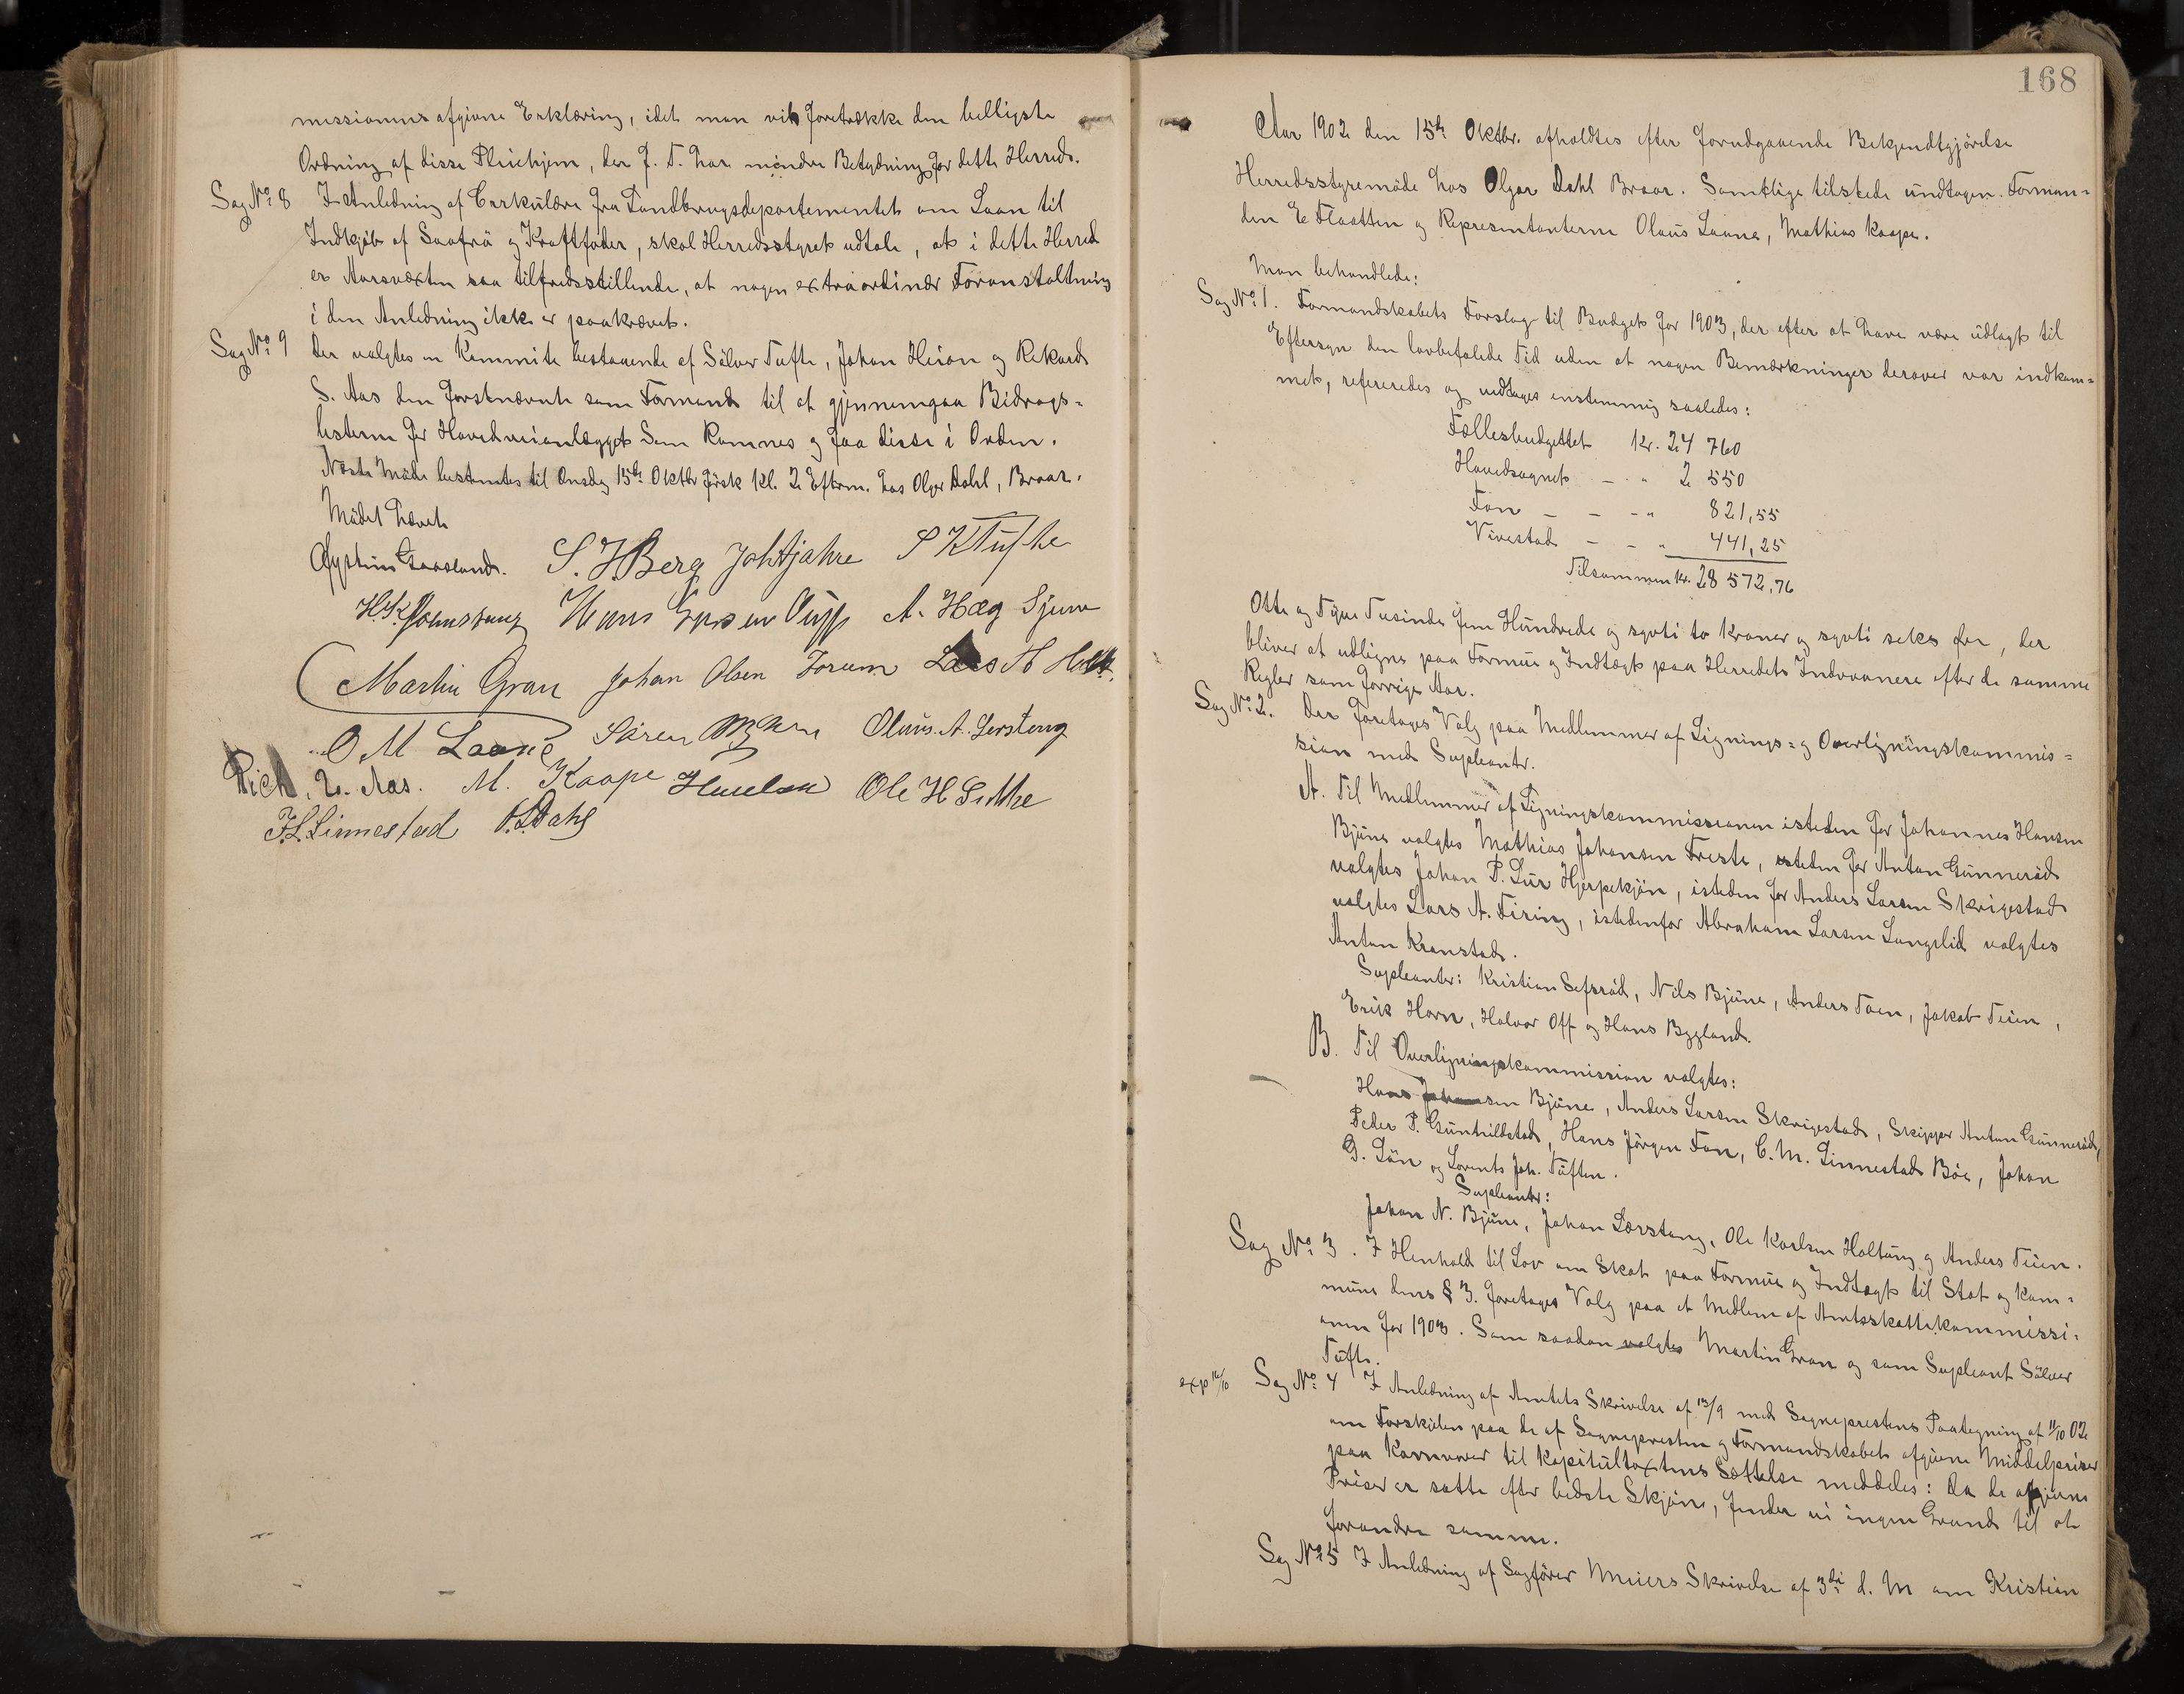 missionens afgivne Erklæring, idet man vil foretrække den billigste
Ordning af disse Pleiehjem, der f. T. har mindre Betydning for dette Herred.
Sag No 8 I Anledning af Cirkulære fra Landbrugsdepartementet om Laan til
Indkjöb af Saafrö og Kraftfoder, skal Herredsstyret udtale, at i dette Herred
er Aarsvæxten saa tilfredsstillende, at nogen extraordinær Foranstaltning
i den Anledning ikke er paakrævet.
Sag No 9 Der valgtes en Kommite bestaaende af Sölver Tufte, Johan Hieron og Rikard
S. Aas den förstnævnte som Formand til at gjennemgaa Bidrags=
listerne for Hovedveianlægget Sem Ramnes og faa disse i Orden.
Næste Möde bestemtes til Onsdag 15de Oktbr förstk Kl. 2 Efterm. hos Olger Dahl, Braar.
Mödet hævet
Øystein Graaland. S. J. Berg Joh Fjahre S K Tufte
Hans A. Hæg Bjune
Martin Gran Johan Olsen Jorum Lars H
O M Laane Sören Olaus. A. Lerstang
Rich. S. Aas. M. Kaape Ole H
F. L. Linnestad O. Dahl
168
Aar 1902 den 15de Oktbr. afholdtes efter forudgaaende Bekjendtgjörelse
Herredsstyremöde hos Olgar Dahl Braar. Samtlige tilstede undtagen Forman=
den E Flaatten og Repræsentanterne Olaus Laane, Mathias Kaape.
Man behandlede:
Sag No 1. Formandskabets Forslag til Budget for 1903, der efter at have være udlagt til
Eftersyn den lovbefalede Tid uden at nogen Bemærkninger derover var indkom=
met, refereredes og vedtages enstemmig saaledes:
Fællesbudgettet Kr. 24 760
Hovedsognet — " 2 550
Fon — — — " 821,55
Vivestad — — " 441,25
Tilsammen Kr. 28 572,76
Otte og Tyve Tusinde fem Hundrede og sytti to Kroner og sytti seks öre, der
bliver at udligne paa Formue og Indtægt paa Herredets Indvaanere efter de samme
Regler som forrige Aar.
Sag No 2. Der foretages Valg paa Medlemmer af Lignings= og Overligningskommis=
sion med Supleanter.
A. Til Medlemmer af Ligningskommissionen isteden for Johannes Hansen
Bjune valgtes Mathias Johansen Freste, isteden for Anton Gunneröd
valgtes Johan P. Lur Hjerpekjön, isteden for Anders Larsen Skrigestad
valgtes Lars A. Firing, istedenfor Abraham Larsen Langelid valgtes
Anton Kranstad.
Supleanter: Kristian Sefsröd, Nils Bjune, Anders Taen, Jakob Teien,
Erik Horn, Halvor Off og Hans Bygland.
B. Til Overligningskommission valgtes:
Hans Johansen Bjune, Anders Larsen Skrigestad, Skipper Anton Gunneröd,
Peder P. Gunhildstad, Hans Jörgen Fon, C. M. Linnestad Böe, Johan
G. Lön og Lorents Joh. Tuften.
Supleanter:
Johan N. Bjune, Johan Lærstang, Ole Karlsen Holtung og Anders Teien.
Sag No 3. I Henhold til Lov om Skat paa Formue og Indtægt til Stat og kom=
mune dens § 3. foretages Valg paa et Medlem af Amtsskattekommissi=
onen for 1903. Som saadan valgtes Martin Gran og som Supleant Sölver
Tufte.
exp 16/10 Sag No 4 I Anledning af Amtets Skrivelse af 13/9 med Sogneprestens Paategning af 11/10 02
om Forskjelen paa de af Sognepresten og Formandskabet afgivne Middelpriser
paa Kornvarer til Kapitultaxtens Sættelse meddeles: Da de afgivne
Priser er satte efter bedste Skjön, finder vi ingen Grund til at
forandre samme.
Sag No 5 I Anledning af Sagförer Meiers Skrivelse af 3die d. M om Kristian